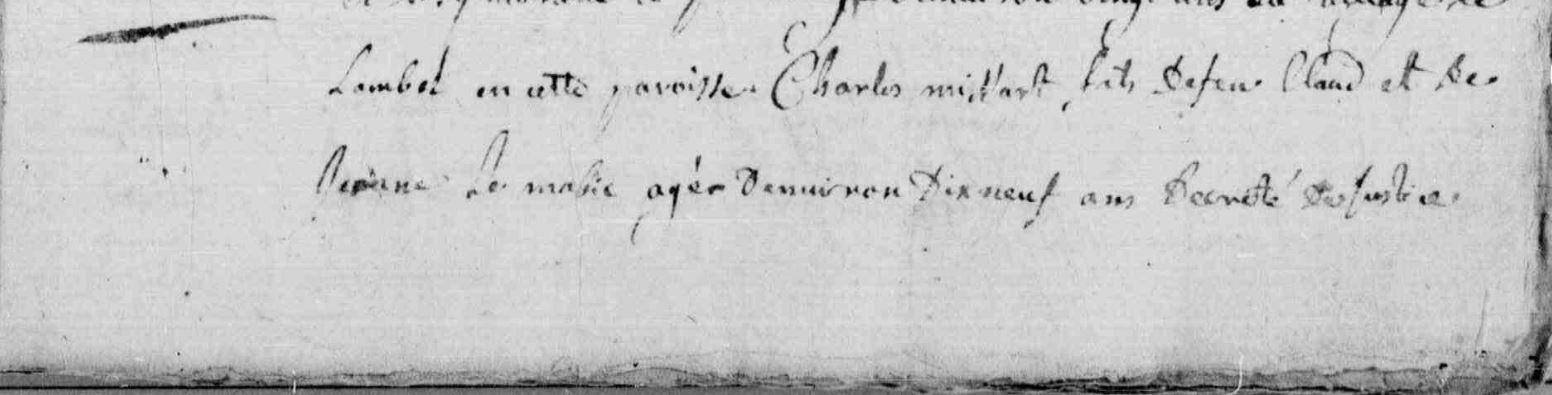 denuiron vingt ans du village de
Lambel en cette paroisse. Charles missart fils defeu Claud et de
Jeanne Le masie agér denuiron dix neuf ans decreté de justice